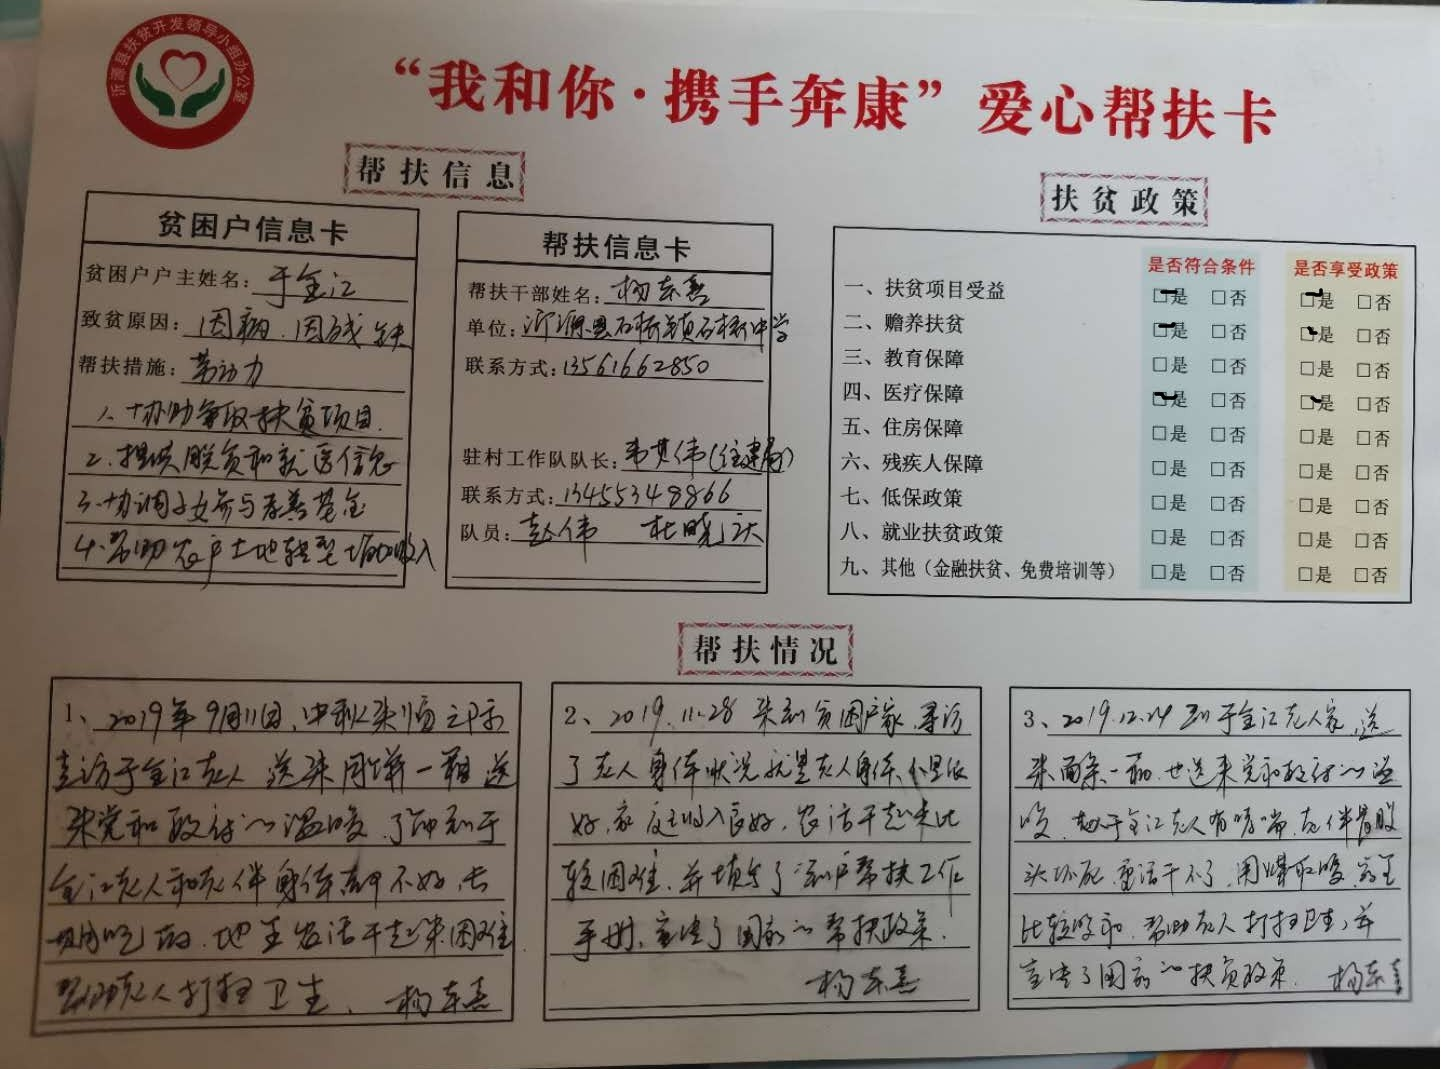 沂源县扶贫开发领导小组办公室
“我和你·携手奔康”爱心帮扶卡
帮扶信息
贫困户信息卡
贫困户户主姓名：于全江
致贫原因：因病、因残 缺
帮扶措施：劳动力
1、协助争取扶贫项目.
2.提供脱贫和就医信息
3.协调子女参与孝善基金
4.帮助农户土地转型增加收入
帮扶信息卡
帮扶干部姓名：杨东熹
单位：沂源县石桥镇石桥中学
联系方式：13561662850
驻村工作队队长：韦其伟(住建局)
联系方式：13455348866
队员：赵伟 杜晓
扶贫政策
是否符合条件 是否享受政策
一、扶贫项目受益 □是 □否 □是 □否
二、赡养扶贫 □是 □否 □是 □否
三、教育保障 □是 □否 □是 □否
四、医疗保障 □是 □否 □是 □否
五、住房保障 □是 □否 □是 □否
六、残疾人保障 □是 □否 □是 □否
七、低保政策 □是 □否 □是 □否
八、就业扶贫政策 □是 □否 □是 □否
九、其他（金融扶贫、免费培训等） □是 □否 □是 □否
帮扶情况
1、2019年9月11日，中秋来临之际
走访于全江老人 送来月饼一箱 送
来党和政府的温暖 了解到于
全江老人和老伴身体都不好，长
期吃药，地里农活干起来困难
帮助老人打扫卫生. 杨东熹
2、2019.11.28 来到贫困户家，寻访
了老人身体状况 老人身体
好，家庭收入良好，农活干起来比
较困难，并填写了 户帮扶工作
手册，宣传了国家的帮扶政策.
杨东熹
3、2019.12.24 到于全江老人家，送
来面条一箱，也送来党和政府的温
暖，于全江老人有哮喘，老伴骨股
头坏死，重活干不了，用煤取暖，室
比较暖和，帮助老人打扫卫生，并
宣传了国家的扶贫政策. 杨东熹